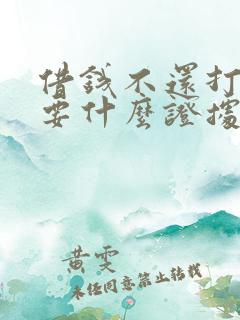 借錢不還打
要什麼證據
黄雯
未经同意禁止转载